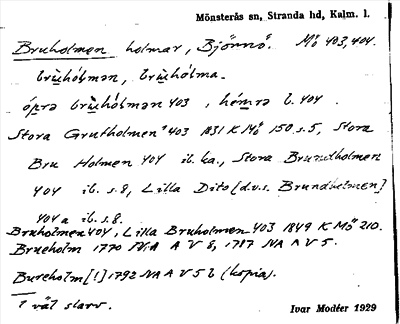 Mönsterås sn, Stranda hd, Kalm. l.
Bruholmen holmar, Björnö. Mö 403, 404.
brùhólmen, brùhólma.
ópra brùhólmen 403, hémra b. 404.
Stora Grutholmen¹ 403 1831 K Mö 150 s.5, Stora
Bru Holmen 404 ib. ka., Stora Brundholmen
404 ib. s.8, Lilla Dito [d.v.s. Brundholmen]
404 a ib. s.8.
Bruholmen 404, Lilla Bruholmen 403 1849 K Mö 210.
Brueholm 1770 NA A V 8, 1787 NA A V 5.
Bureholm [!] 1792 NA A V 5 b (kopia).
¹ väl skrv.
Ivar Modéer 1929